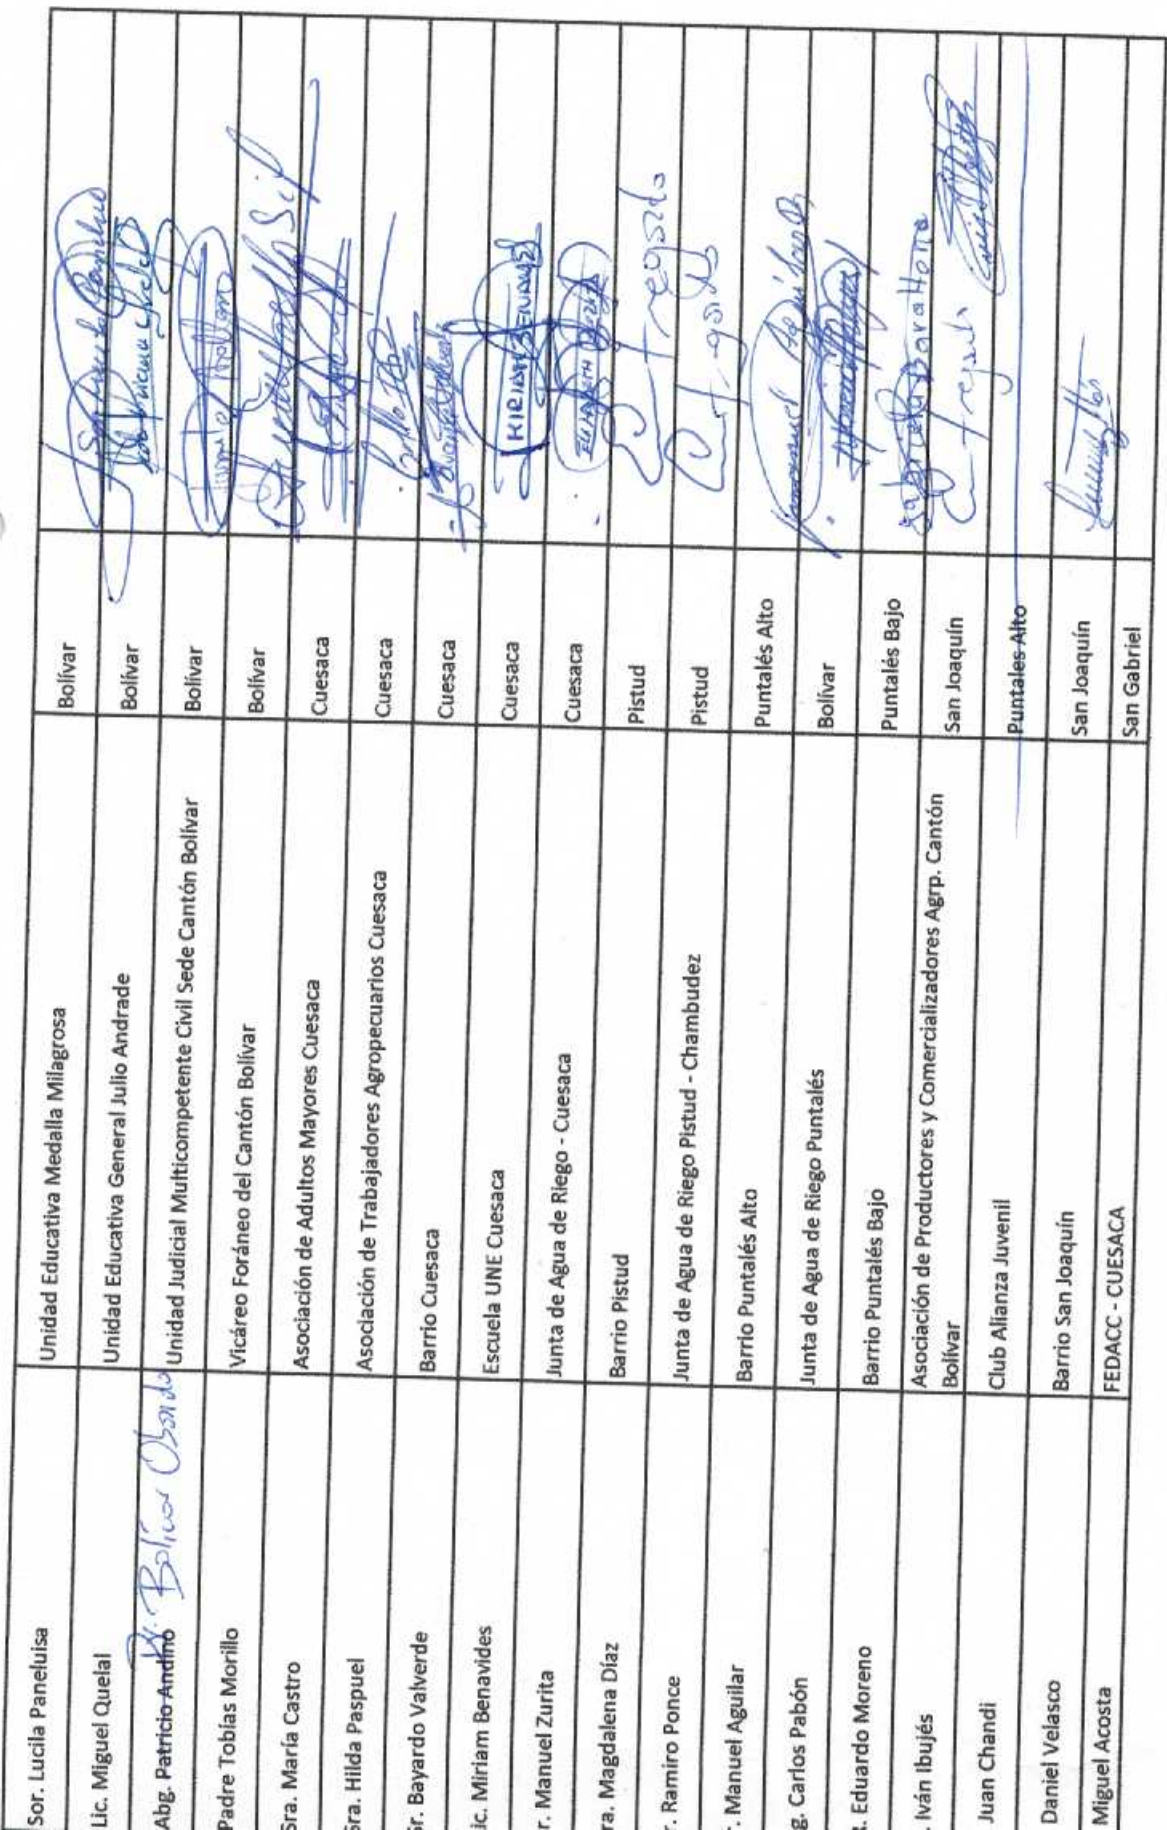 Sor. Lucila Paneluisa Unidad Educativa Medalla Milagrosa Bolívar
Lic. Miguel Quelal Unidad Educativa General Julio Andrade Bolívar
Abg. Patricio Andino Dr. Bolívar Obando Unidad Judicial Multicompetente Civil Sede Cantón Bolívar Bolívar
Padre Tobías Morillo Vicáreo Foráneo del Cantón Bolívar Bolívar
Sra. María Castro Asociación de Adultos Mayores Cuesaca Cuesaca
Sra. Hilda Paspuel Asociación de Trabajadores Agropecuarios Cuesaca Cuesaca
Sr. Bayardo Valverde Barrio Cuesaca Cuesaca
ic. Miriam Benavides Escuela UNE Cuesaca Cuesaca
r. Manuel Zurita Junta de Agua de Riego - Cuesaca Cuesaca
ra. Magdalena Díaz Barrio Pistud Pistud
r. Ramiro Ponce Junta de Agua de Riego Pistud - Chambudez Pistud
. Manuel Aguilar Barrio Puntalés Alto Puntalés Alto
g. Carlos Pabón Junta de Agua de Riego Puntalés Bolívar
. Eduardo Moreno Barrio Puntalés Bajo Puntalés Bajo Gabriela Barahona
. Iván Ibujés Asociación de Productores y Comercializadores Agrp. Cantón San Joaquín
Bolívar
Juan Chandi Club Alianza Juvenil Puntales Alto
Daniel Velasco Barrio San Joaquín San Joaquín
Miguel Acosta FEDACC - CUESACA San Gabriel